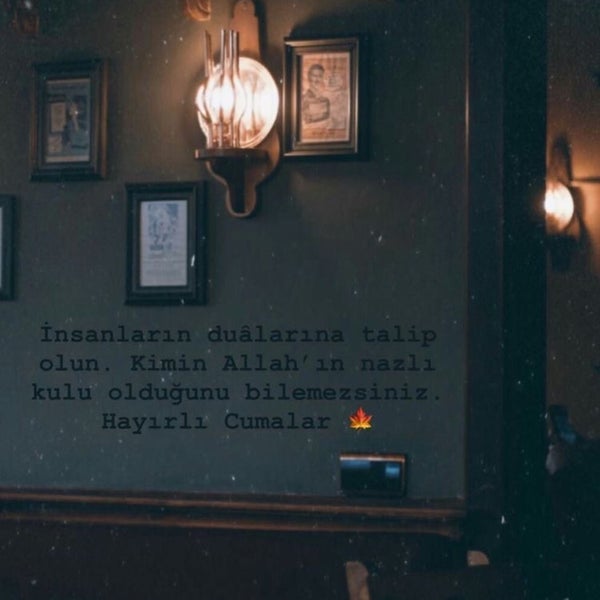 İnsanların duâlarına talip
olun. Kimin Allah'ın nazlı
kulu olduğunu bilemezsiniz.
Hayırlı Cumalar 🍁